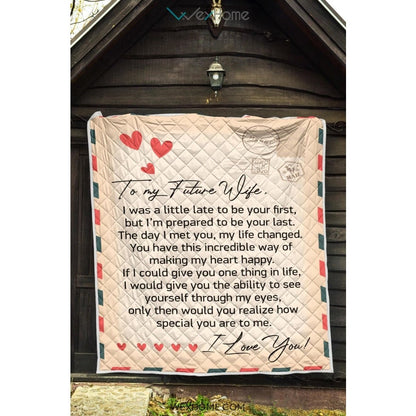 WEXHOME
To my Future Wife.
I was a little late to be your first,
but I'm prepared to be your last.
The day I met you, my life changed.
You have this incredible way of
making my heart happy.
If I could give you one thing in life,
I would give you the ability to see
yourself through my eyes,
only then would you realize how
special you are to me.
I Love You!
WEXHOME.COM